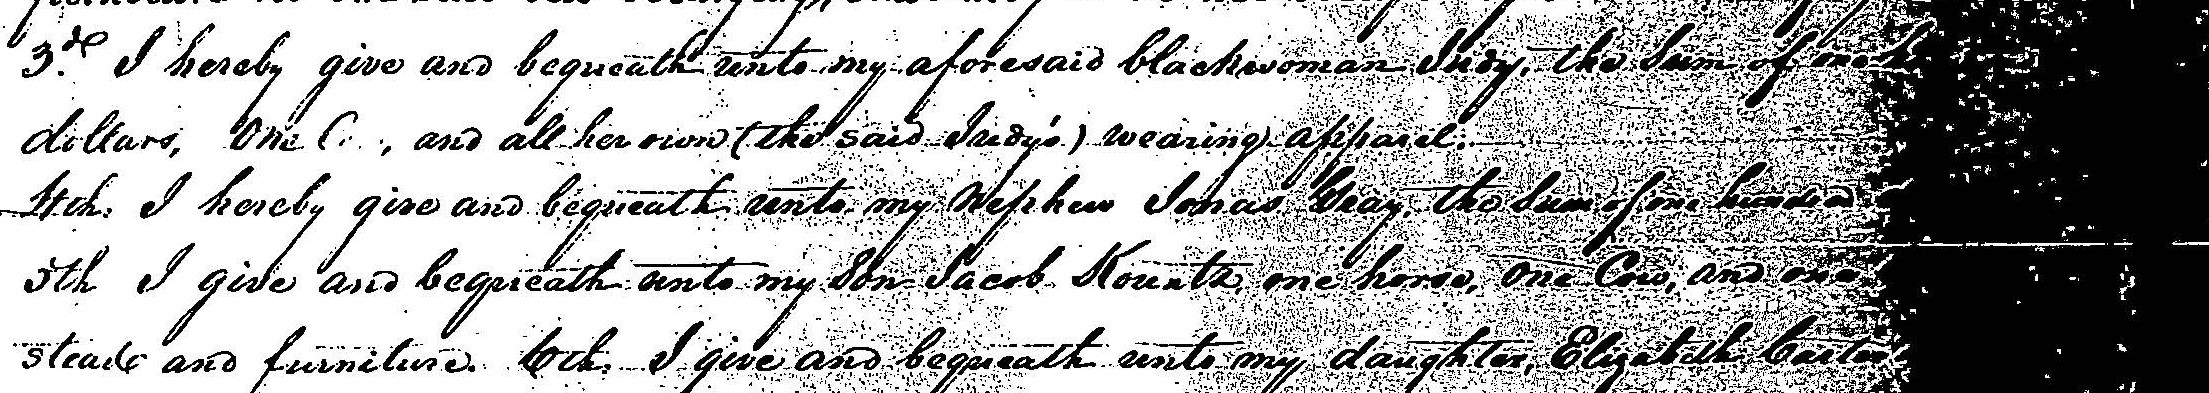 3.d I hereby give and bequeath unto my aforesaid blackwoman Judy, the Sum of one
dollars, One C , and all her own (the said Judy's) wearing apparel.
4th. I hereby give and bequeath unto my Nephew Jonas Gray, the Sum of one hundred
5th I give and bequeath unto my Son Jacob Kountz, one horse, One Cow, and one
steade and furniture. 6th. I give and bequeath unto my daughter, Elizabeth